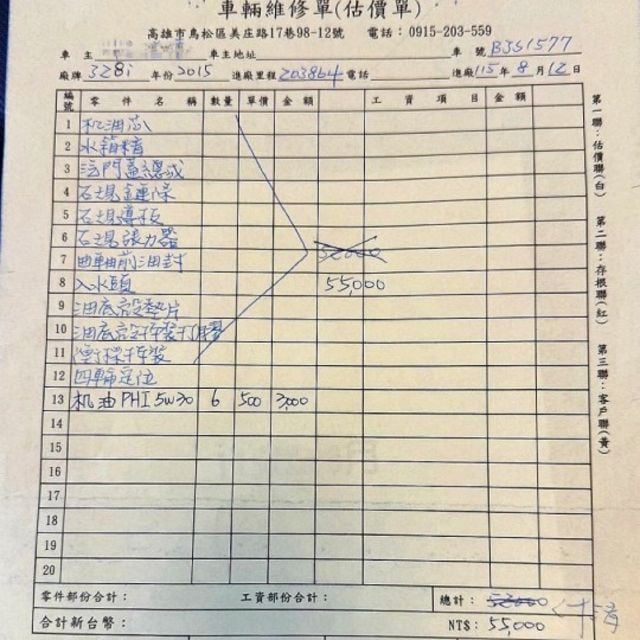 車輛維修單(估價單)
高雄市鳥松區美庄路17巷98-12號 電話：0915-203-559
車主 車主地址 車號 BJS1577
廠牌 328i 年份 2015 進廠里程 203864 電話 進廠 115 年 8 月 12 日
編號 零件名稱 數量 單價 金額 工資項目 金額
1 机油芯
2 水箱精
3 汽門蓋總成
4 石規鏈條
5 石規導板
6 石規張力器 52000
7 曲軸前油封
8 入水頭 55,000
9 油底殼墊片
10 油底殼拆裝打膠
11 拆裝
12 四輪定位
13 机油 PHI 5W30 6 500 3,000
14
15
16
17
18
19
20
零件部份合計： 工資部份合計： 總計： 52000
合計新台幣： NT$： 55000
第一聯：估價聯(白)
第二聯：存根聯(紅)
第三聯：客戶聯(黃)